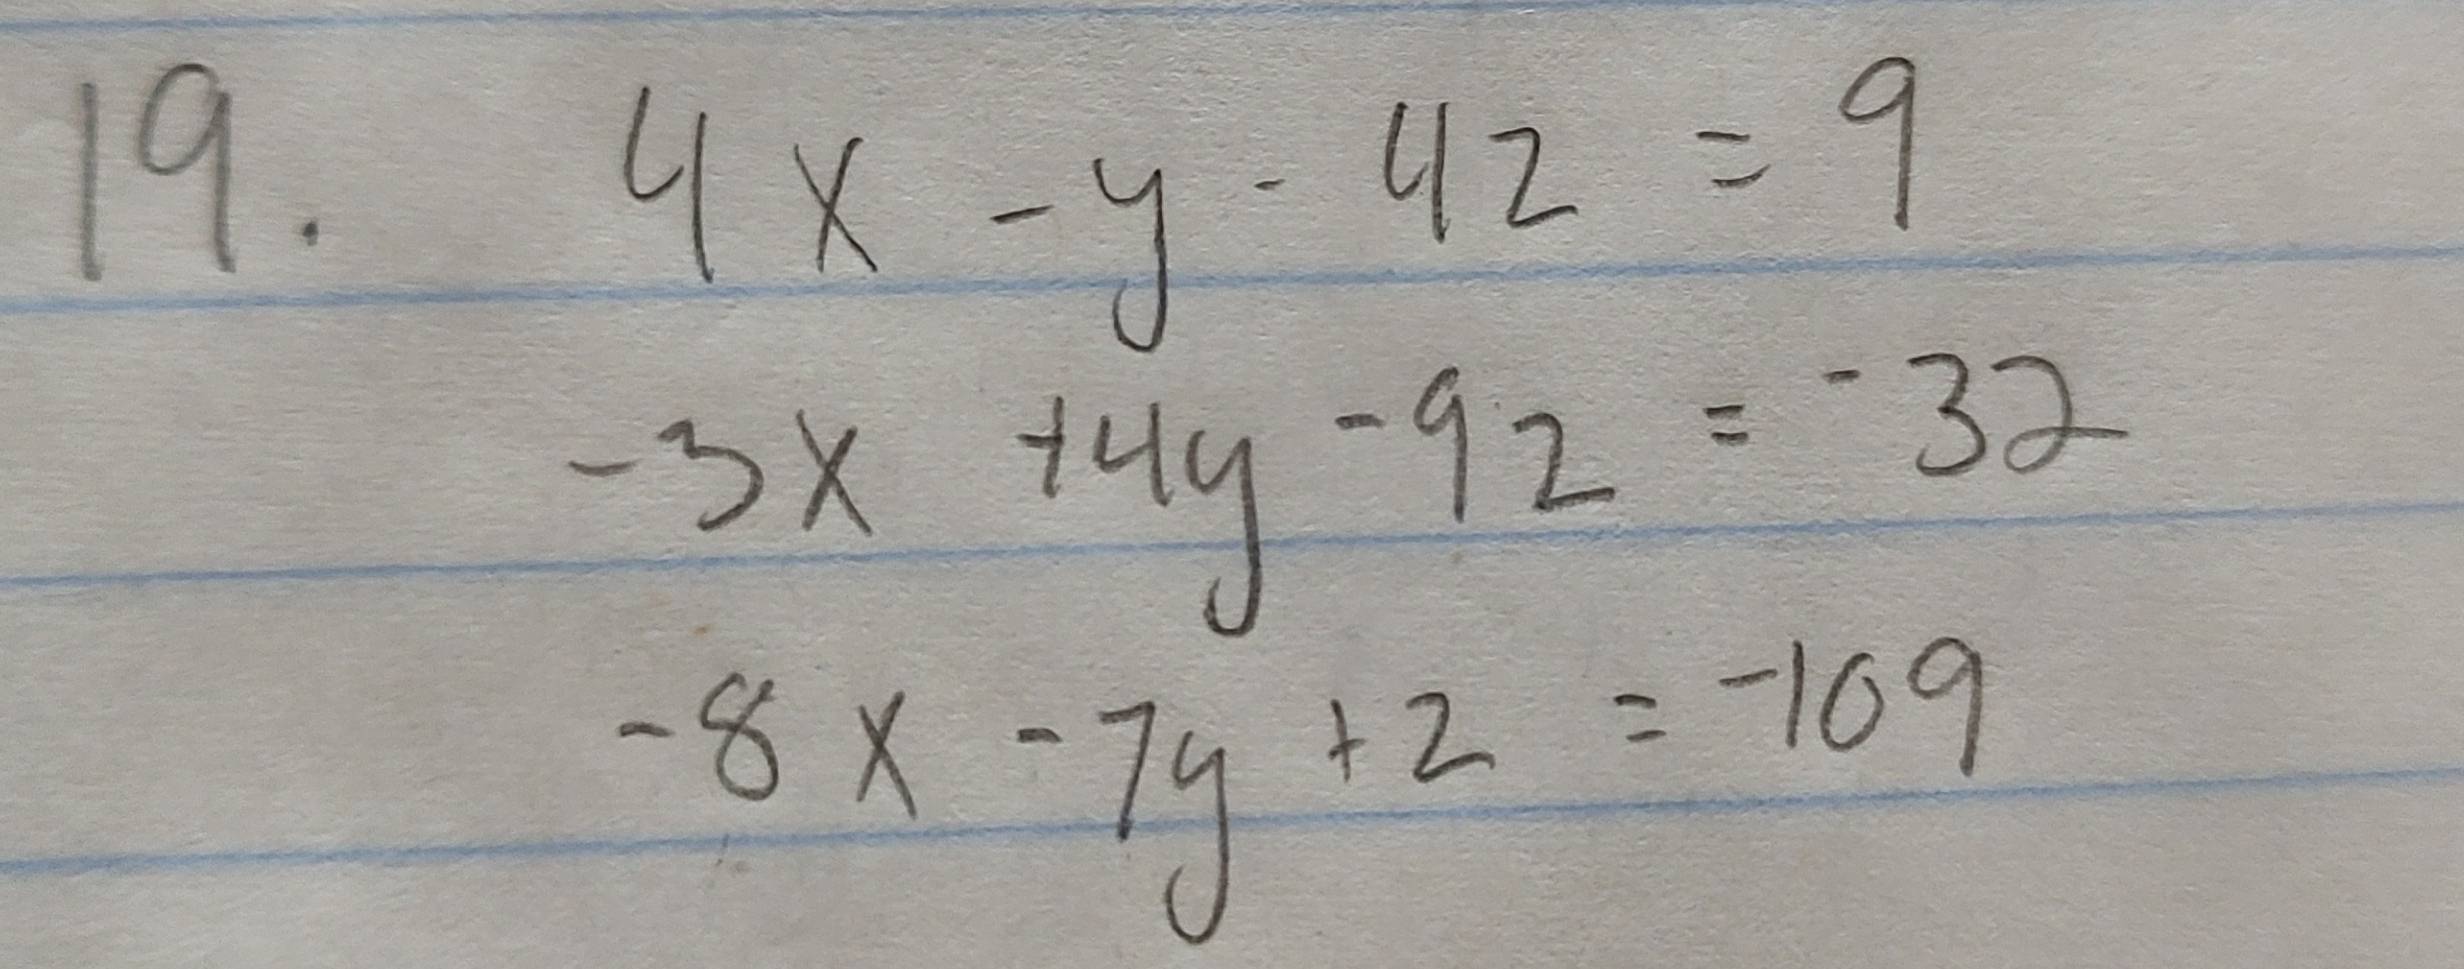 19. 4x - y - 4z = 9
-3x + 4y - 9z = -32
-8x - 7y + z = -109